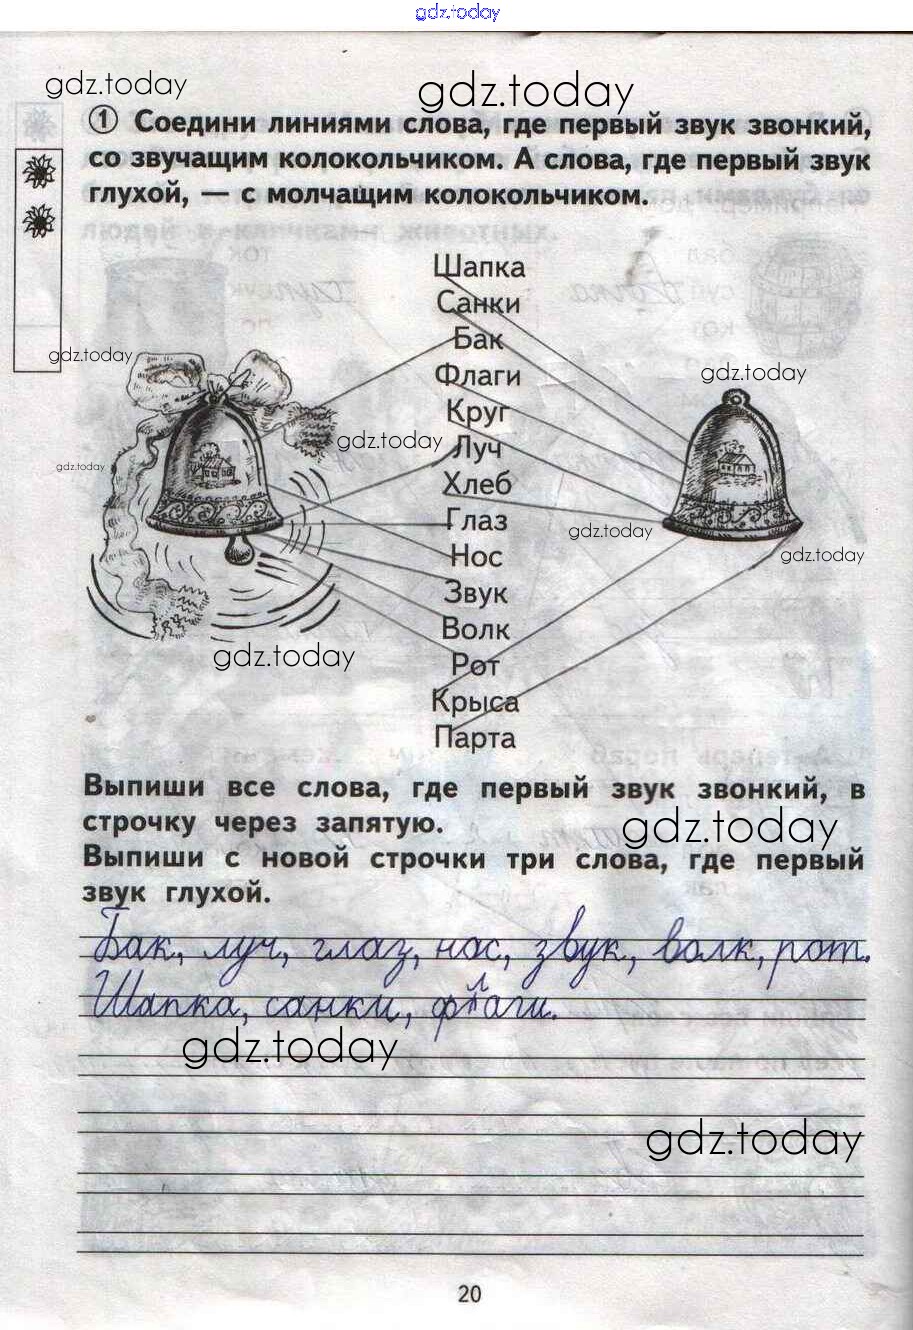 gdz.today
gdz.today gdz.today
1 Соедини линиями слова, где первый звук звонкий,
со звучащим колокольчиком. А слова, где первый звук
глухой, — с молчащим колокольчиком.
Шапка
Санки
Бак
gdz.today
Флаги
gdz.today
Круг
gdz.today
Луч
gdz.today
Хлеб
Глаз
gdz.today
Нос
gdz.today
Звук
Волк
gdz.today
Рот
Крыса
Парта
Выпиши все слова, где первый звук звонкий, в
строчку через запятую.
gdz.today
Выпиши с новой строчки три слова, где первый
звук глухой.
Бак, луч, глаз, нос, звук, волк, рот.
Шапка, санки, флаги.
gdz.today
gdz.today
20